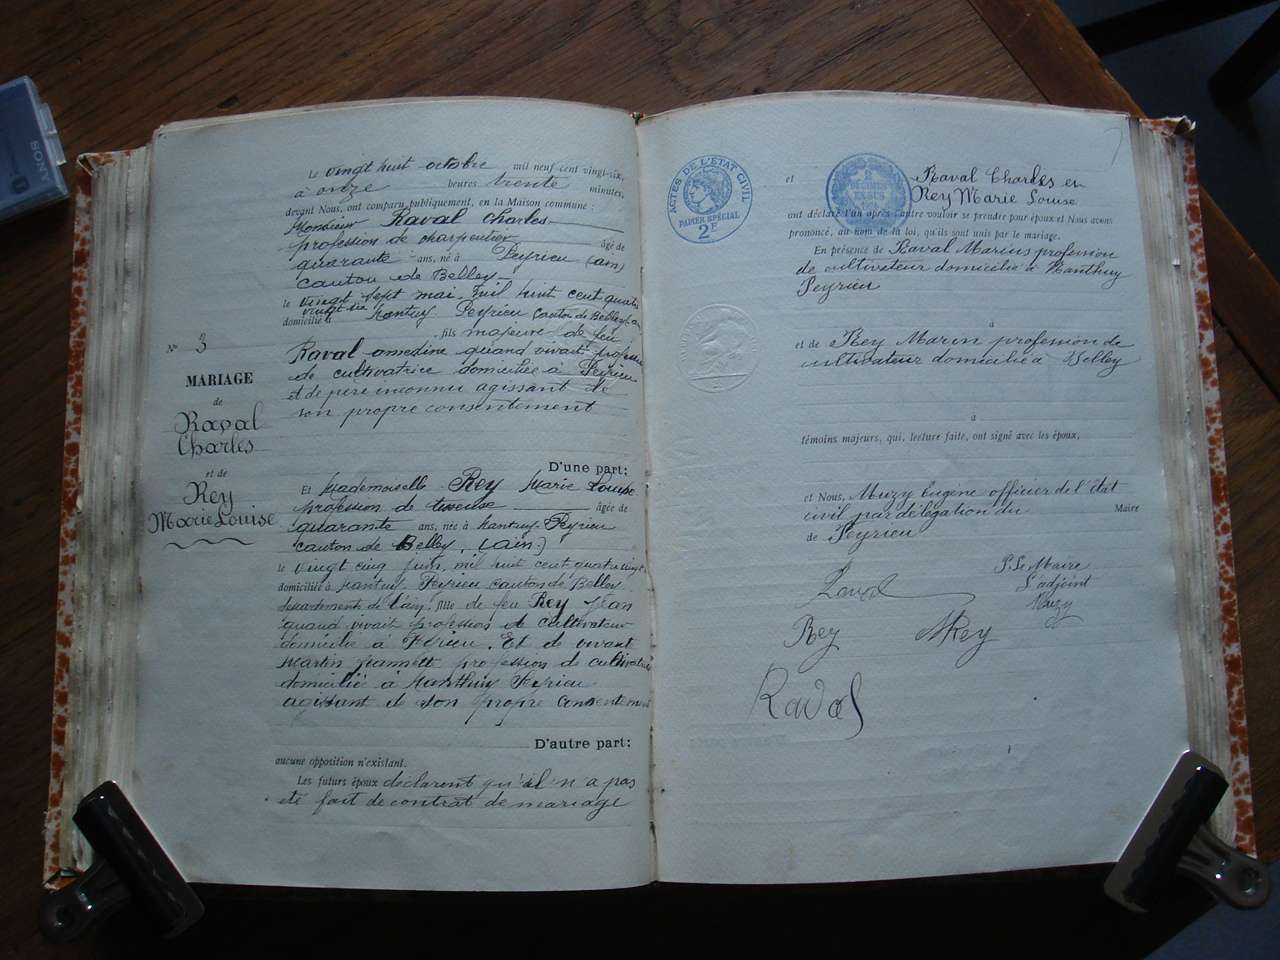 Le vingt huit octobre mil neuf cent vingt-six,
à onze heures trente minutes,
devant Nous, ont comparu publiquement, en la Maison commune :
Monsieur Raval Charles
profession de charpentier âgé de
quarante ans, né à Peyrieu (ain)
canton de Belley
le vingt sept mai mil huit cent quatre
vingt six
domicilié à Nantuy Peyrieu canton de Belley
fils majeure de feu
Raval quand vivait
de cultivatrice domiciliée à Peyrieu
et de père inconnu agissant de
son propre consentement
N° 3
MARIAGE
de
Raval
Charles
et de
Rey
Marie Louise
D'une part;
Et Mademoiselle Rey Marie Louise
profession de âgée de
quarante ans, née à Nantuy Peyrieu
canton de Belley, (ain)
le vingt cinq juin, mil huit cent quatre vingt
domiciliée à Nantuy Peyrieu canton de Belley
département de l'ain, fille de feu Rey Jean
quand vivait profession de cultivateur
domicilié à Peyrieu. Et de vivante
Martin Jeannette profession de cultivatrice
domicilié à Nanthuy Peyrieu
agissant de son propre consentement
D'autre part;
aucune opposition n'existant.
Les futurs époux déclarent qu'il n'a pas
été fait de contrat de mariage
ACTES DE L'ÉTAT CIVIL
PAPIER SPÉCIAL
2F
2
DÉCIMES
EN SUS
et Raval Charles et
Rey Marie Louise
ont déclaré l'un après l'autre vouloir se prendre pour époux et Nous avons
prononcé, au nom de la loi, qu'ils sont unis par le mariage.
En présence de Raval Marius profession
de cultivateur domicilié à Nanthuy
Peyrieu
à
et de Rey Marin profession de
cultivateur domicilié à Belley
à
témoins majeurs, qui, lecture faite, ont signé avec les époux,
et Nous, Muzy Eugène officier de l'état
civil par délégation du Maire
de Peyrieu
P. Le Maire
L'adjoint
Muzy
Raval
Rey MRey
Raval
SONY